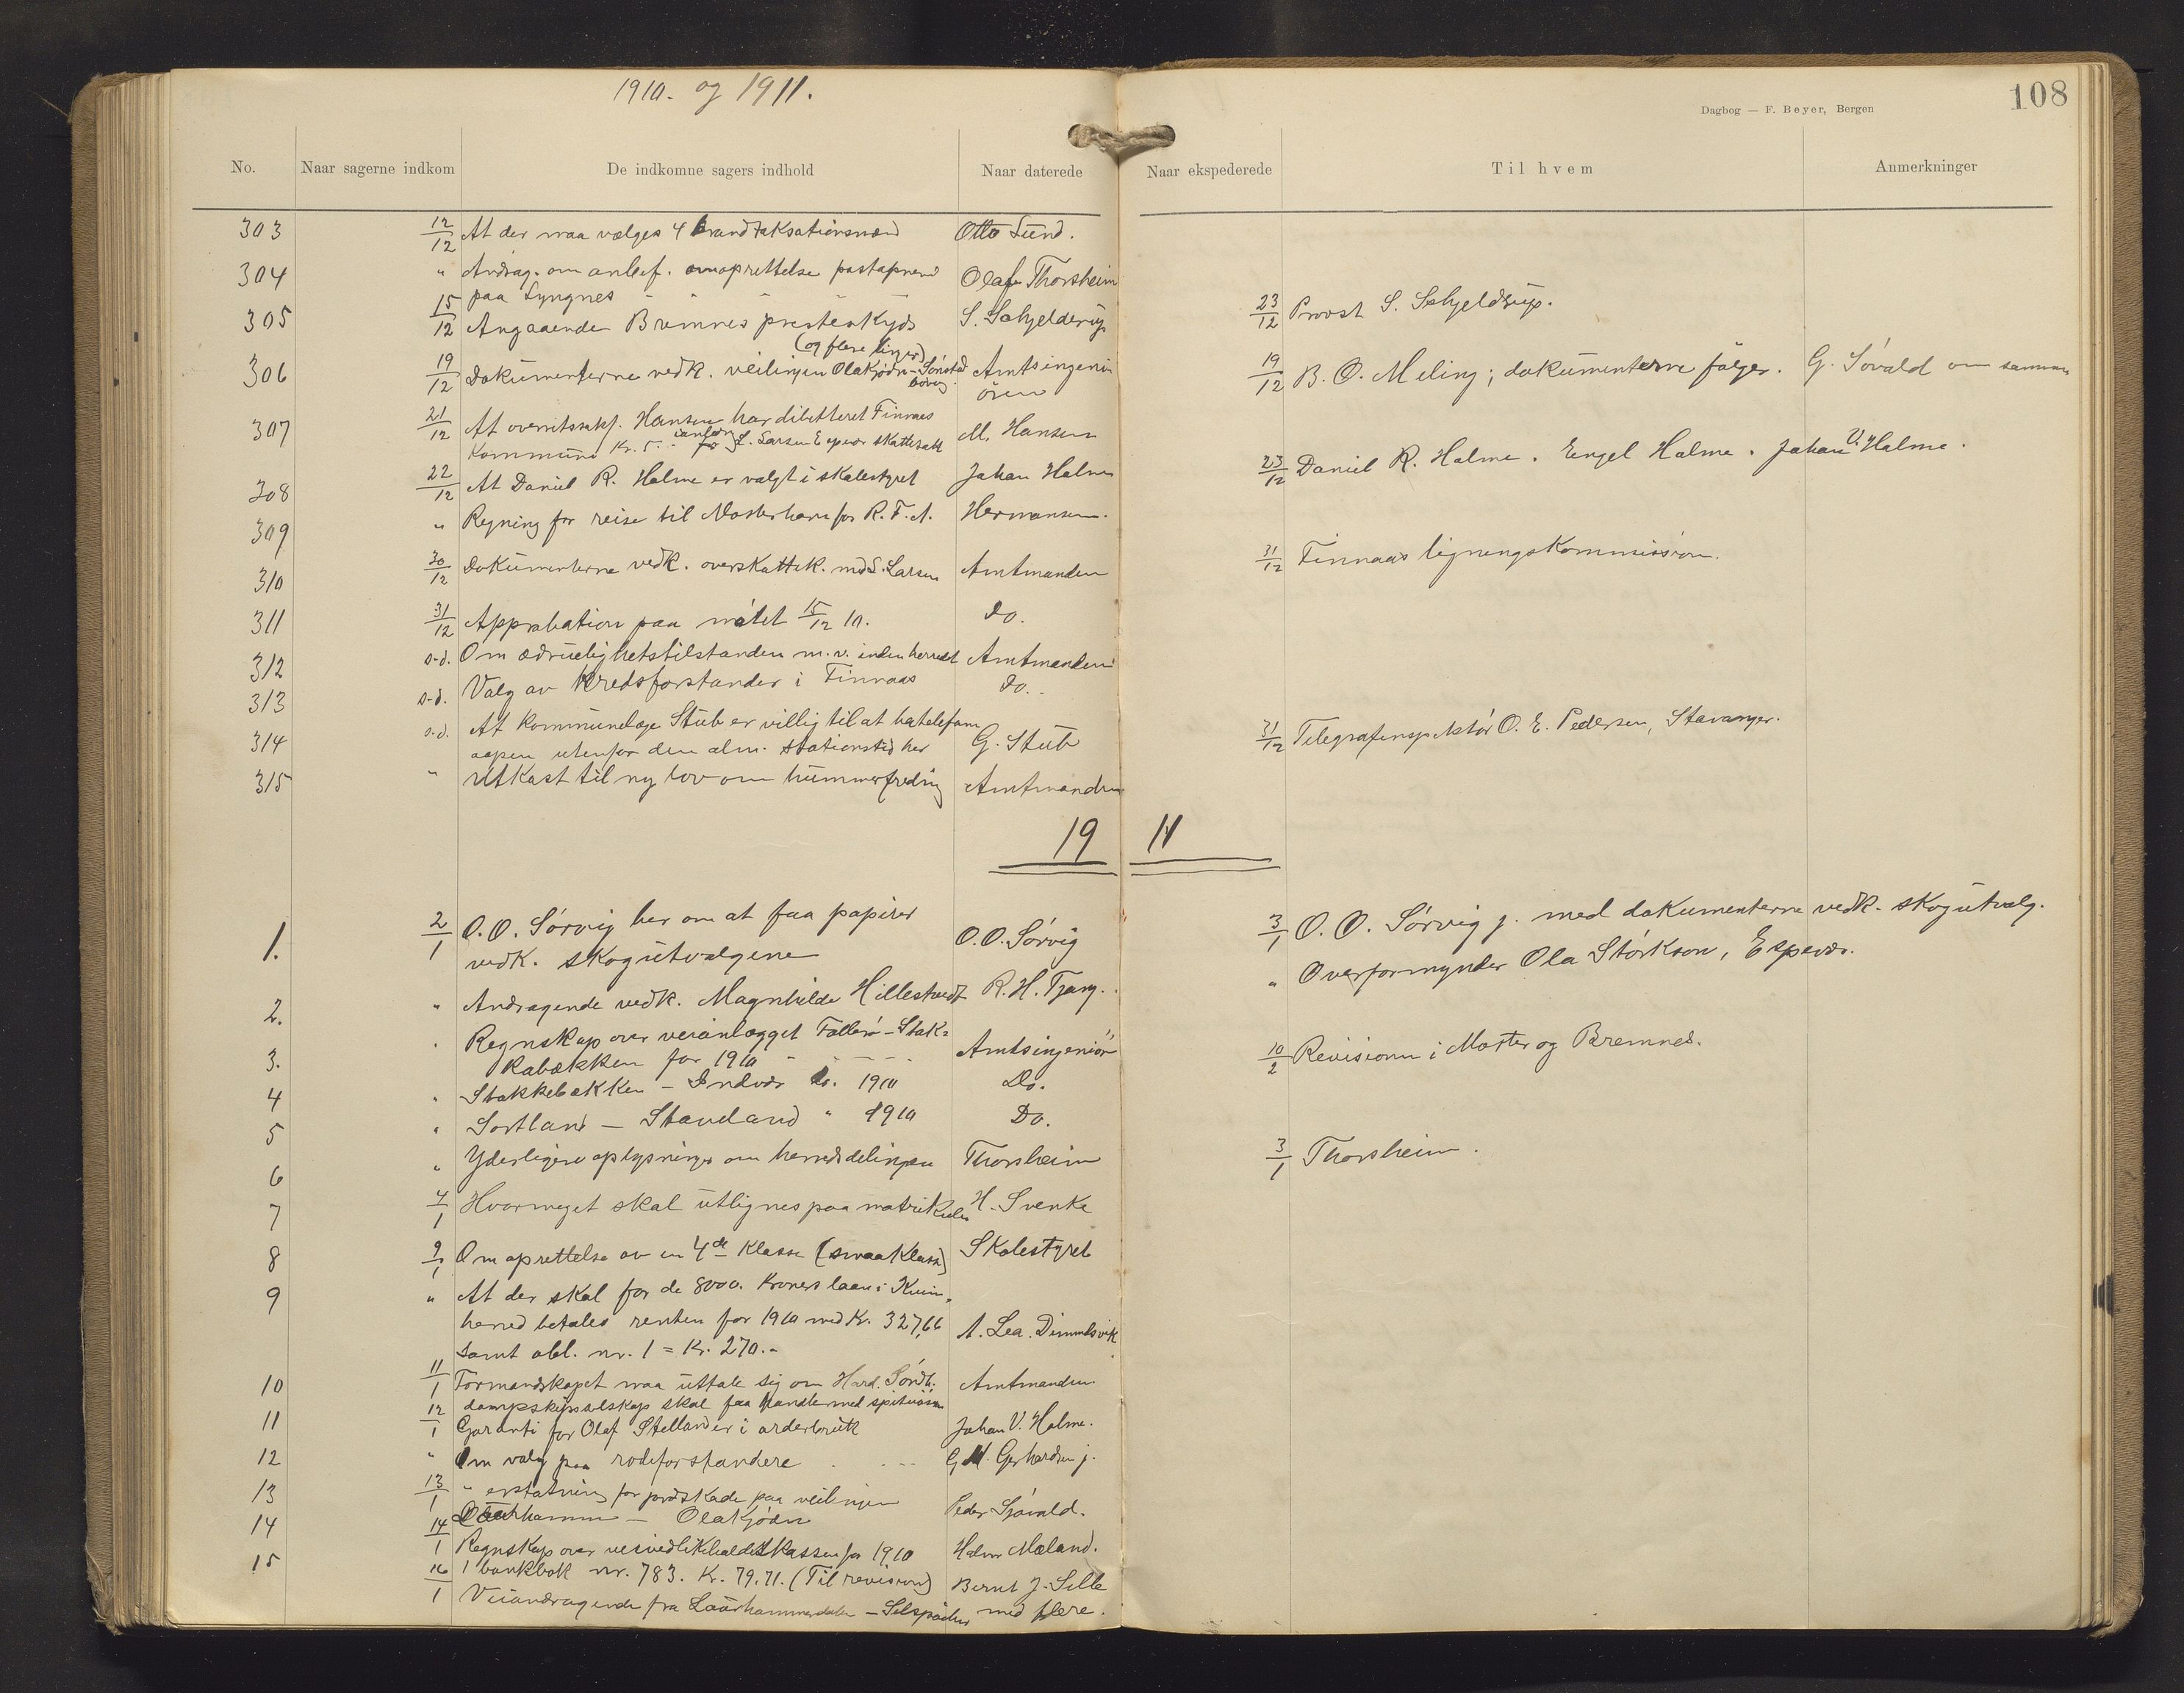 1910. og 1911.
108
Dagbog — F. Beyer, Bergen
No.
Naar sagerne indkom
De indkomne sagers indhold
Naar daterede
Naar ekspederede
Til hvem
Anmerkninger
303 12/12 At der maa vælges 4 brandtaksationsmænd Otto Lund.
304 " Andrag. om anbef. om oprettelse postaapneri Olaf Thorsheim
paa Lyngnes
305 15/12 Angaaende Bremnes presteskyds S. Schjelderup 23/12 Provst S. Schjeldrup.
(og flere linjer)
306 19/12 Dokumenterne vedk. veilinjen Olakjødn - Amtsingeni- 19/12 B. O. Meling; dokumenterne følger. G. Søvald om samme
øren
307 21/12 At overretssakf. Hansen har dibitteret Finnaas M. Hansen
kommune Kr. 5.- L. Larsen Espevær skattesak
308 22/12 At Daniel R. Holme er valgt i skolestyret Johan Holme 23/12 Daniel R. Holme. Engel Holme. Johan V. Holme.
309 " Regning for reise til Mosterhavn for R. F. A. Hermansen.
310 30/12 Dokumenterne vedk. overskattek. md L. Larsen Amtmanden 31/12 Finnaas ligningskommission.
311 31/12 Approbation paa møtet 15/12 10. Do.
312 s.d. Om ædruelighetstilstanden m.v. inden herredet Amtmanden
313 s.d. Valg av kredsforstander i Finnaas Do.
314 s.d. At kommunelæge Stub er villig til at ha telefon G. Stub 31/12 Telegrafinspektør O. E. Pedersen, Stavanger.
aapen utenfor den alm. stationstid her
315 " Utkast til ny lov om hummerfredning Amtmanden
1911
1. 2/1 O. O. Sørvig ber om at faa papirer O. O. Sørvig 3/1 O. O. Sørvig j. med dokumenterne vedk. skogutvalg.
vedk. skogutvalgene
2. " Andragende vedk. Magnhilde Hillestvedt R. H. Tjang. " Overformynder Ola Størkson, Espevær.
3. " Regnskap over veianlægget Follerø - Stak-
kabækken for 1910 Amtsingeniør 10/2 Revisionen i Moster og Bremnes.
4 " Stakkebækken - Indvær do. 1910 Do.
5 " Sortland - Stavland " 1910 Do.
6 " Yderligere oplysninger om herredsdelingen Thorsheim 3/1 Thorsheim.
7 4/1 Hvormeget skal utlignes paa matrikulen H. Svenke
8 9/1 Om oprettelse av en 4de klasse (smaaklasse) Skolestyret
9 " At der skal for de 8000. kroners laan i Kvin-
herred betales renten for 1910 med Kr. 327,66 A. Lea. Dimmelsvik
samt obl. nr. 1 = Kr. 270.-
10 11/1 Formandskapet maa uttale sig om Hard. Søndh. Amtmanden
dampskipsselskap skal faa handle med spirituosa
11 12/1 Garanti for Olaf Stellander i orderbruk Johan V. Holme.
12 " Om valg paa rodeforstandere G. M. Gerhardsen j.
13 13/1 " erstatning for jordskade paa veilinjen
- Olakjødn Peder Sjøvold.
14 14/1 Regnskap over veivedlikeholdskassen for 1910 Halvor Mæland.
1 bankbok nr. 783. Kr. 79.71. (Til revision)
15 16/1 Veiandragende fra Laurhammerdalen - Bernt J. Selle
med flere.